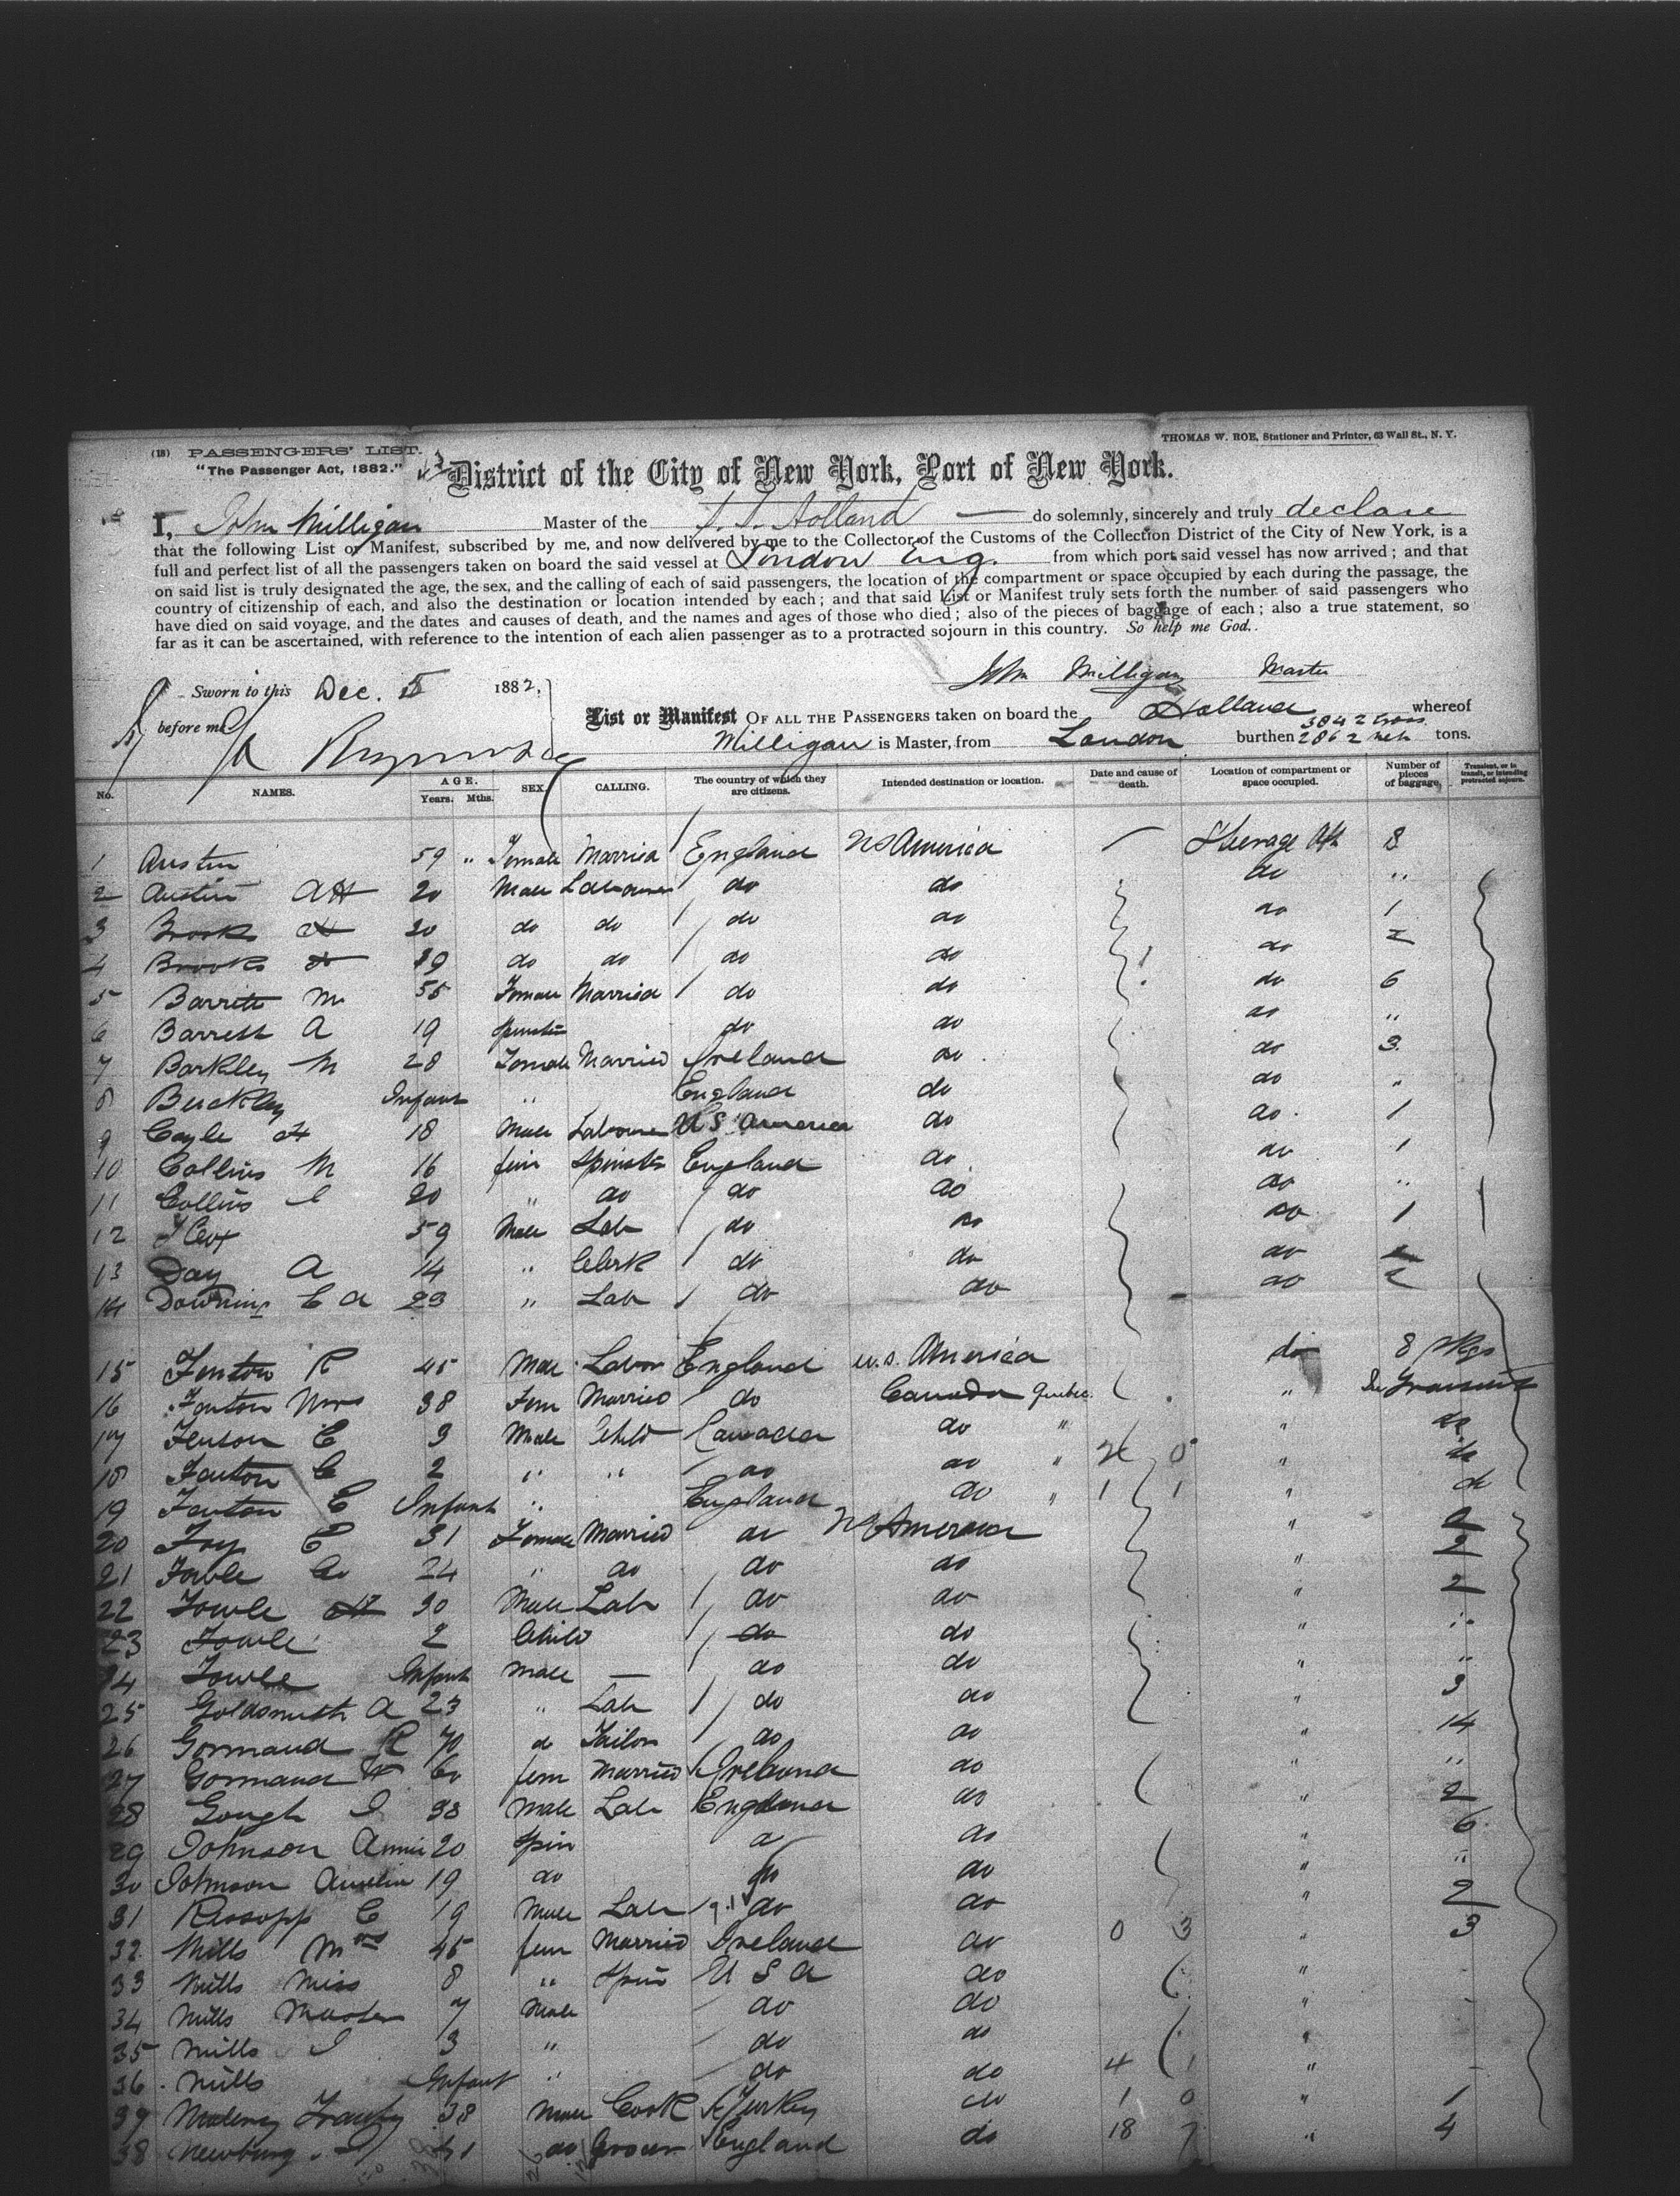 (18) PASSENGERS' LIST.
THOMAS W. ROE, Stationer and Printer, 63 Wall St., N. Y.
"The Passenger Act, 1882."
District of the City of New York, Port of New York.
I, John Milligan Master of the S. S. Holland do solemnly, sincerely and truly declare
that the following List or Manifest, subscribed by me, and now delivered by me to the Collector of the Customs of the Collection District of the City of New York, is a
full and perfect list of all the passengers taken on board the said vessel at London Eng. from which port said vessel has now arrived; and that
on said list is truly designated the age, the sex, and the calling of each of said passengers, the location of the compartment or space occupied by each during the passage, the
country of citizenship of each, and also the destination or location intended by each; and that said List or Manifest truly sets forth the number of said passengers who
have died on said voyage, and the dates and causes of death, and the names and ages of those who died; also of the pieces of baggage of each; also a true statement, so
far as it can be ascertained, with reference to the intention of each alien passenger as to a protracted sojourn in this country. So help me God.
John Milligan Master
Sworn to this Dec. 5 1882,
before me
List or Manifest OF ALL THE PASSENGERS taken on board the Holland whereof
Milligan is Master, from London burthen 3842 Gross 2862 nett tons.
No. NAMES. AGE. Years. Mths. SEX. CALLING. The country of which they are citizens. Intended destination or location. Date and cause of death. Location of compartment or space occupied. Number of pieces of baggage. Transient, or in transit, or intending protracted sojourn.
1 Austin 59 " Female Married England US America Steerage Aft 8
2 Austin AH 20 Male Labourer do do do "
3 Brooks 20 do do do do do 1
4 Brooks 19 do do do do do 2
5 Barrett M 55 Female Married do do do 6
6 Barrett A 19 Spinster do do do "
7 Barkley M 28 Female Married Ireland do do 3
8 Buckley Infant " England do do "
9 Coyle H 18 Male Labourer US America do do 1
10 Collins M 16 fem Spinster England do do 1
11 Collins 20 " do do do do "
12 Cox 59 Male Lab do do do 1
13 Day A 14 " Clerk do do do
14 Downing E A 23 " Lab do do do 2
15 Fenton R 45 Male Labor England U.S. America do 8 pkgs
16 Fenton Mrs 38 Fem Married do Canada Quebec " In Transit
17 Fenton E 3 Male Child Canada do " " do
18 Fenton C 2 " " do do " " do
19 Fenton E Infant " England do " " do
20 Foy E 31 Female Married do US America "
21 Fowle 24 " do do do " 2
22 Fowle 30 Male Lab do do " 2
23 Fowle 2 Child do do " "
24 Fowle Infant Male — do do " "
25 Goldsmith A 23 " Lab do do " 3
26 Gormand R 70 do Tailor do do " 14
27 Gormand 60 fem Married Ireland do " "
28 Gough J 38 Male Lab England do " 2
29 Johnson Annie 20 Spin do do " 6
30 Johnson Amelia 19 do do do " "
31 C 19 Male Lab do do " 2
32 Mills Mrs 45 fem Married Ireland do " 3
33 Mills Miss 8 " Spin U S A do " -
34 Mills Master 7 Male do do " -
35 Mills J 3 " do do "
36 Mills Infant " do do " -
37 38 Male Cook Turkey do " 1
38 Newbury do Grocer England do " 4